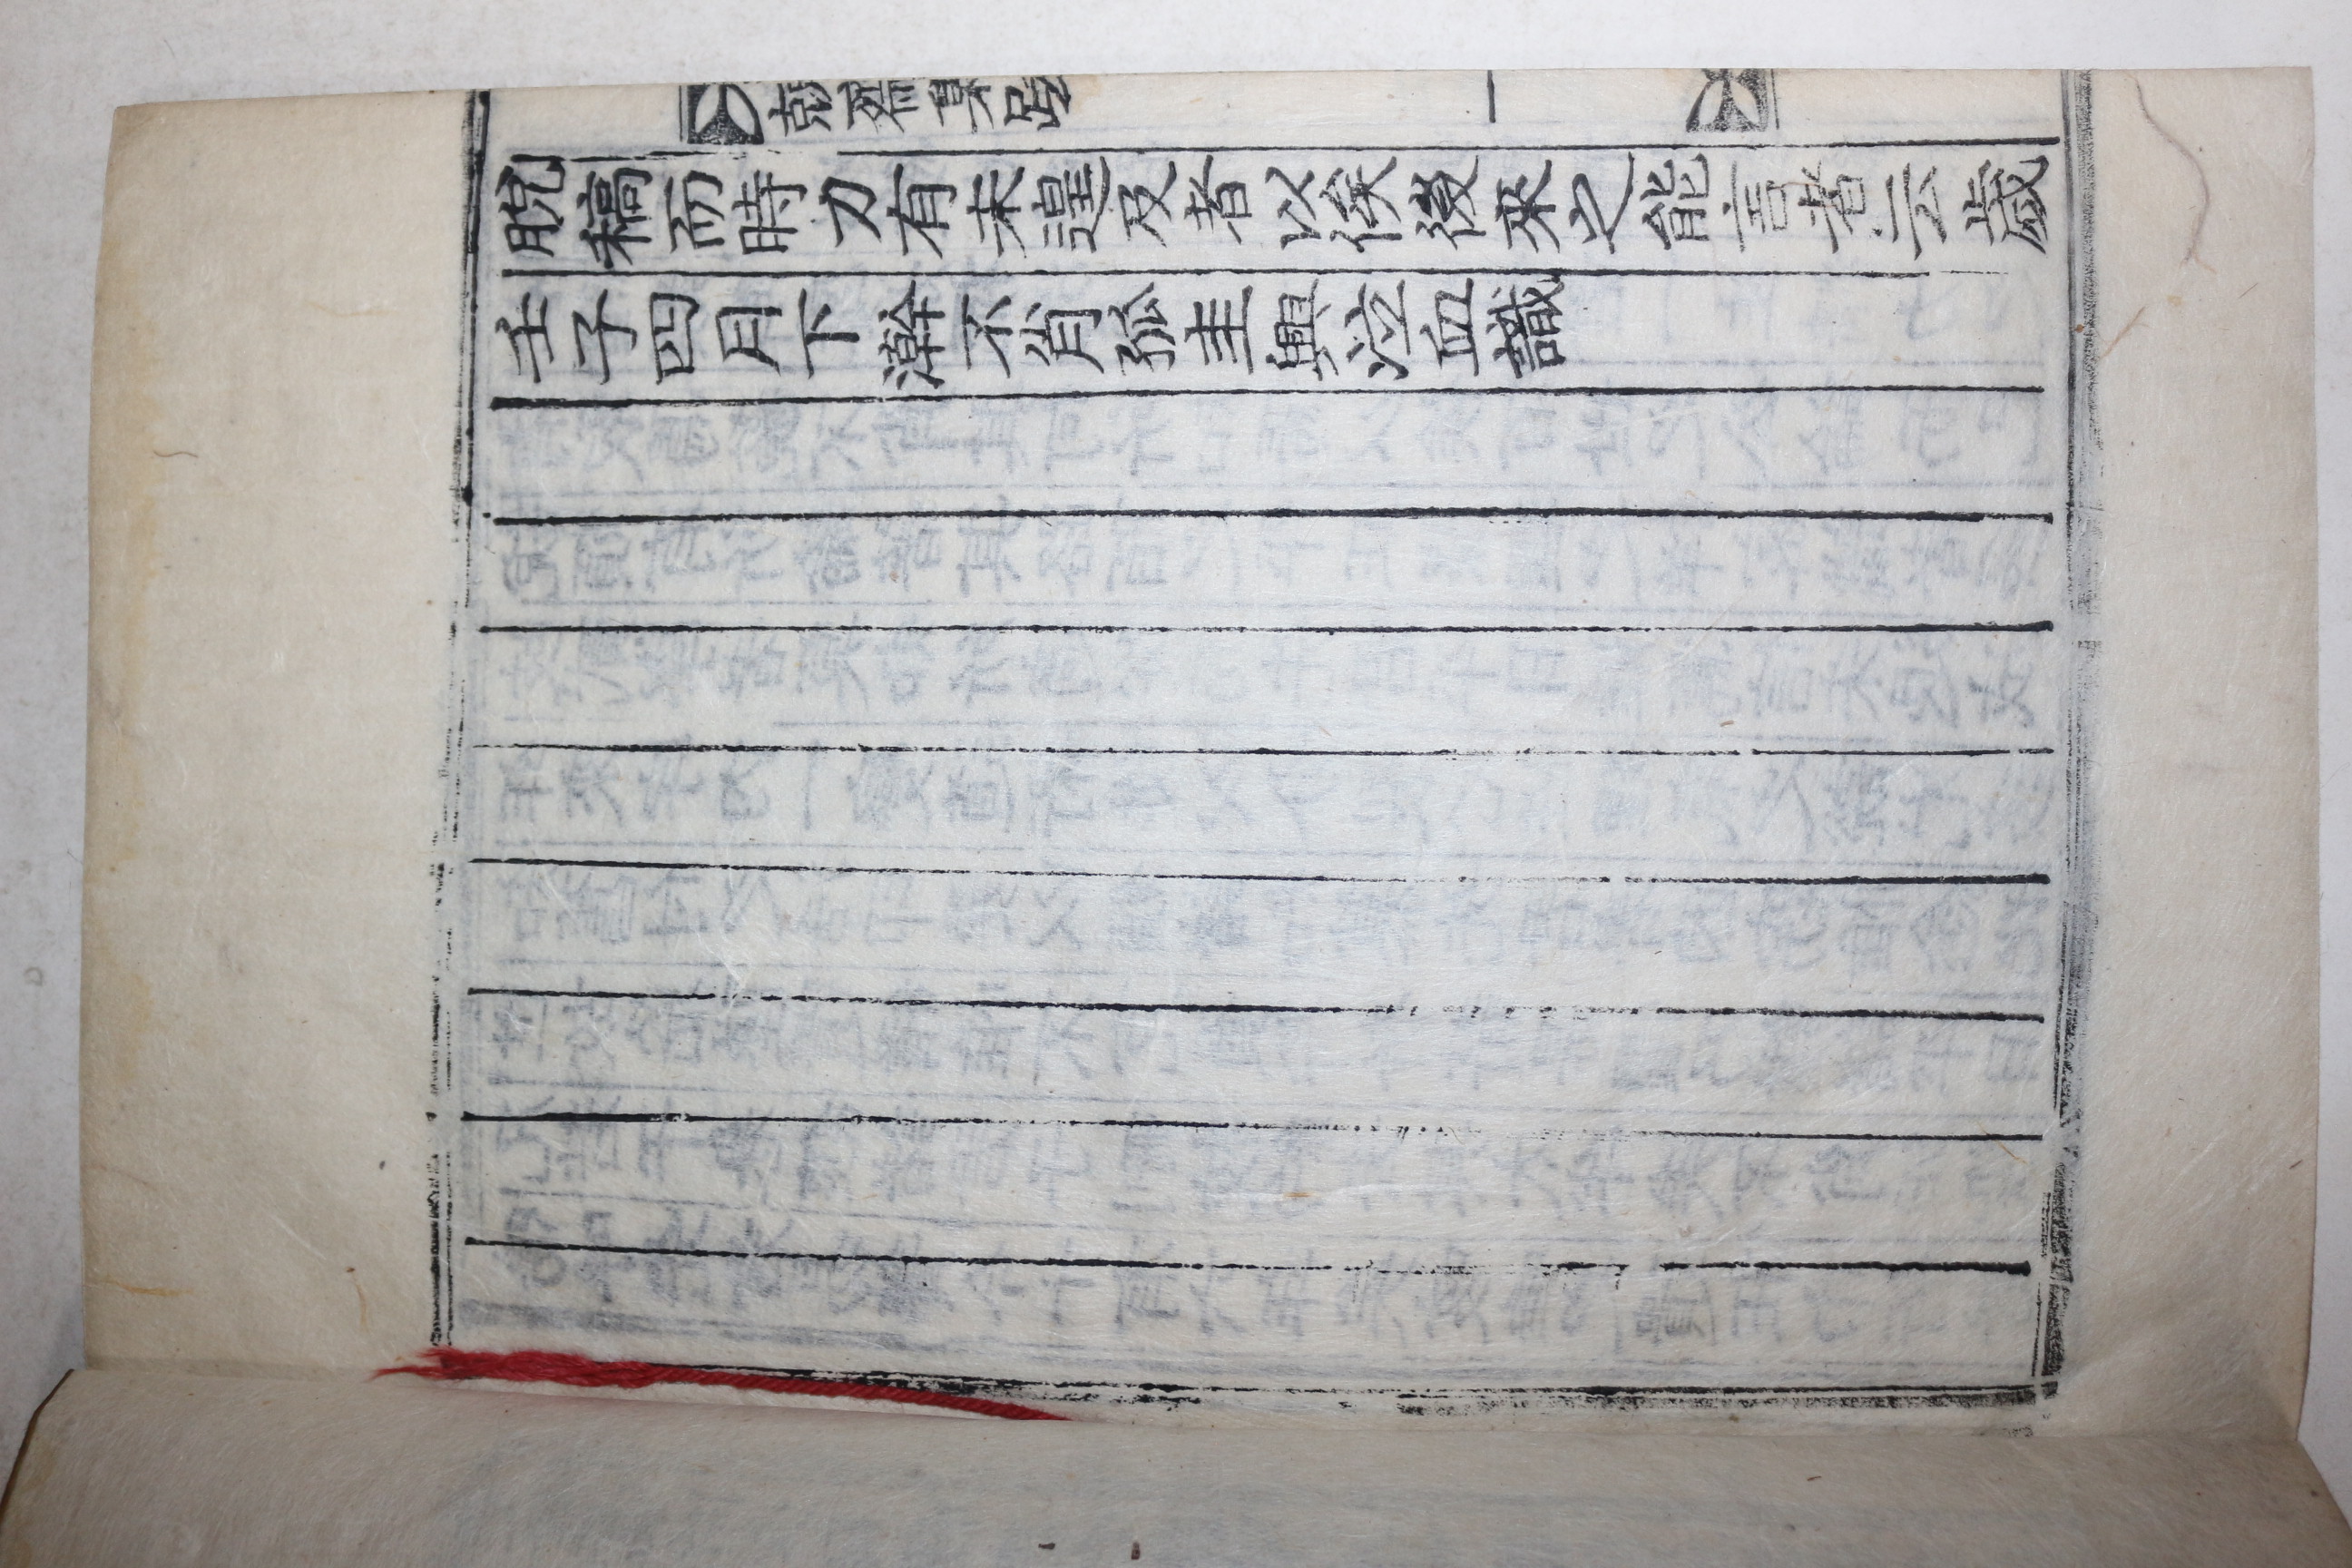 齋集跋
一
脫稿而時力有未遑及者以俟後來之能言者云歲
壬子四月下澣不肖孤圭興泣血識